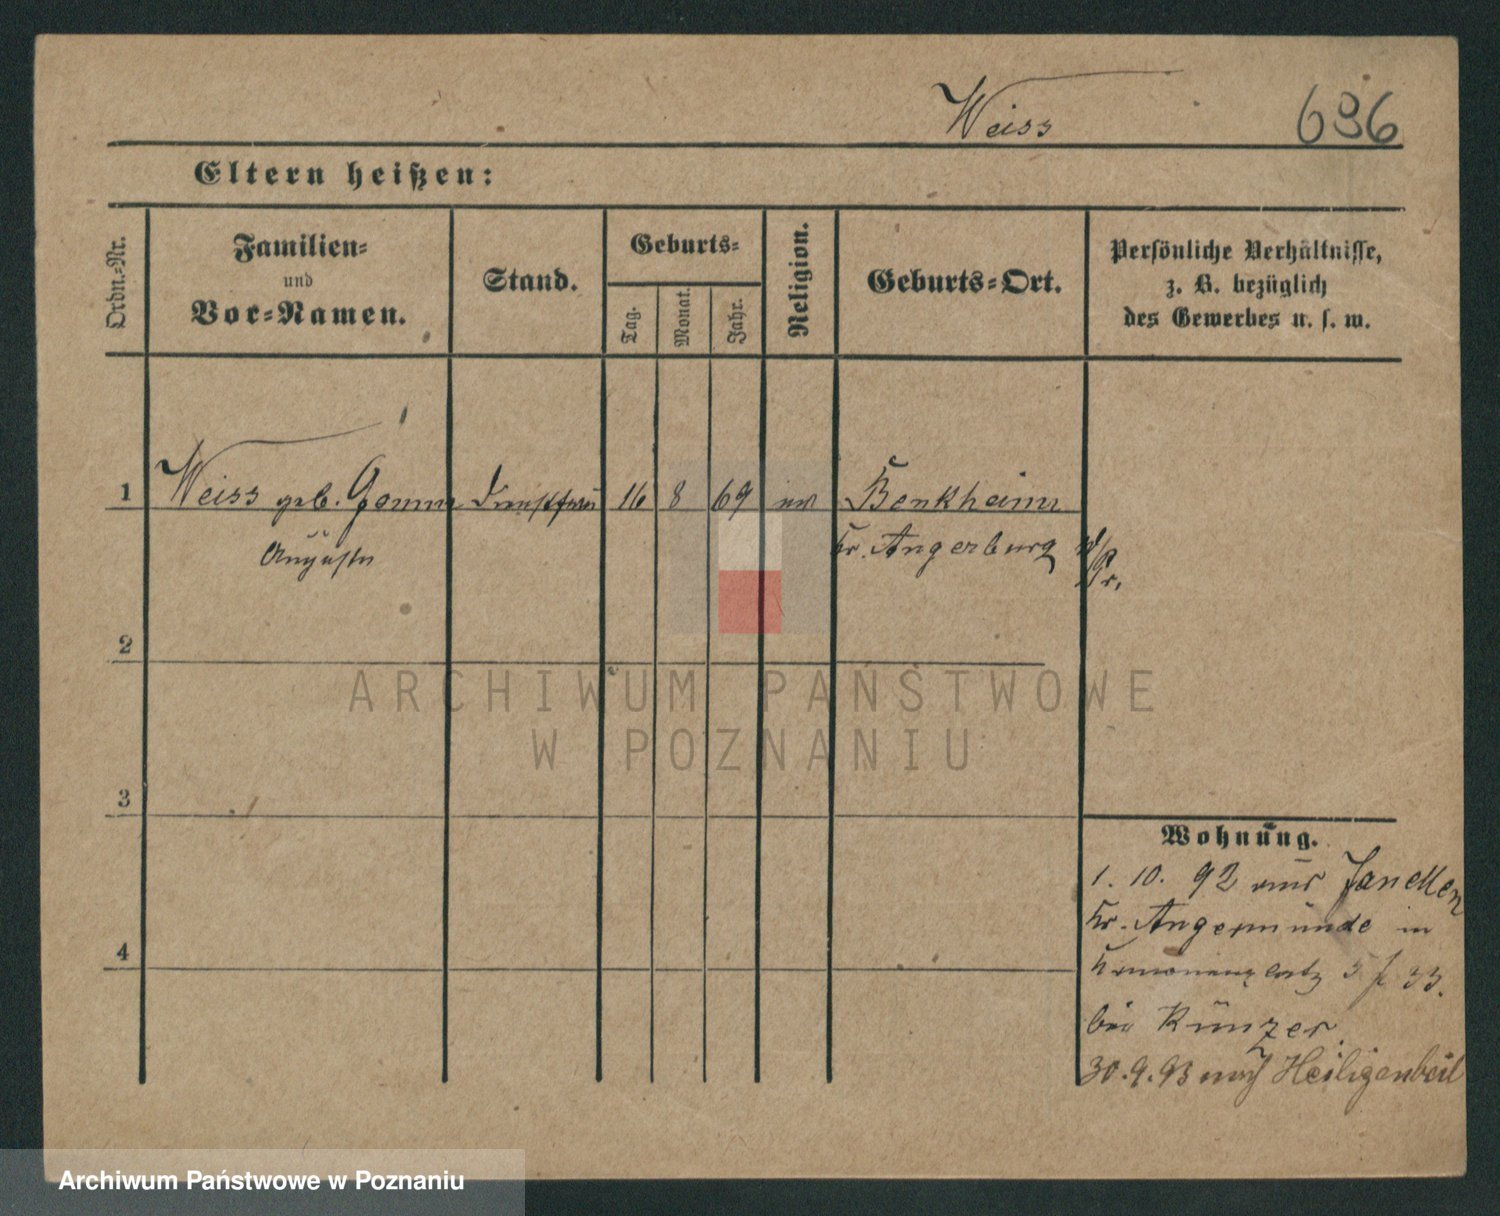 Weiss 636
Eltern heißen:
Ordn.-Nr.
Familien-
und
Vor-Namen.
Stand.
Geburts-
Tag.
Monat.
Jahr.
Religion.
Geburts-Ort.
Persönliche Verhältnisse,
z. B. bezüglich
des Gewerbes u. s. w.
1 Weiss geb. 16 8 69 Benkheim
Auguste Kr. Angerburg
2
ARCHIWUM PAŃSTWOWE
W POZNANIU
3
Wohnung.
1. 10. 92 aus
Kr. Angermünde in
4
bei Künzer
30.9.93 nach Heiligenbeil
Archiwum Państwowe w Poznaniu